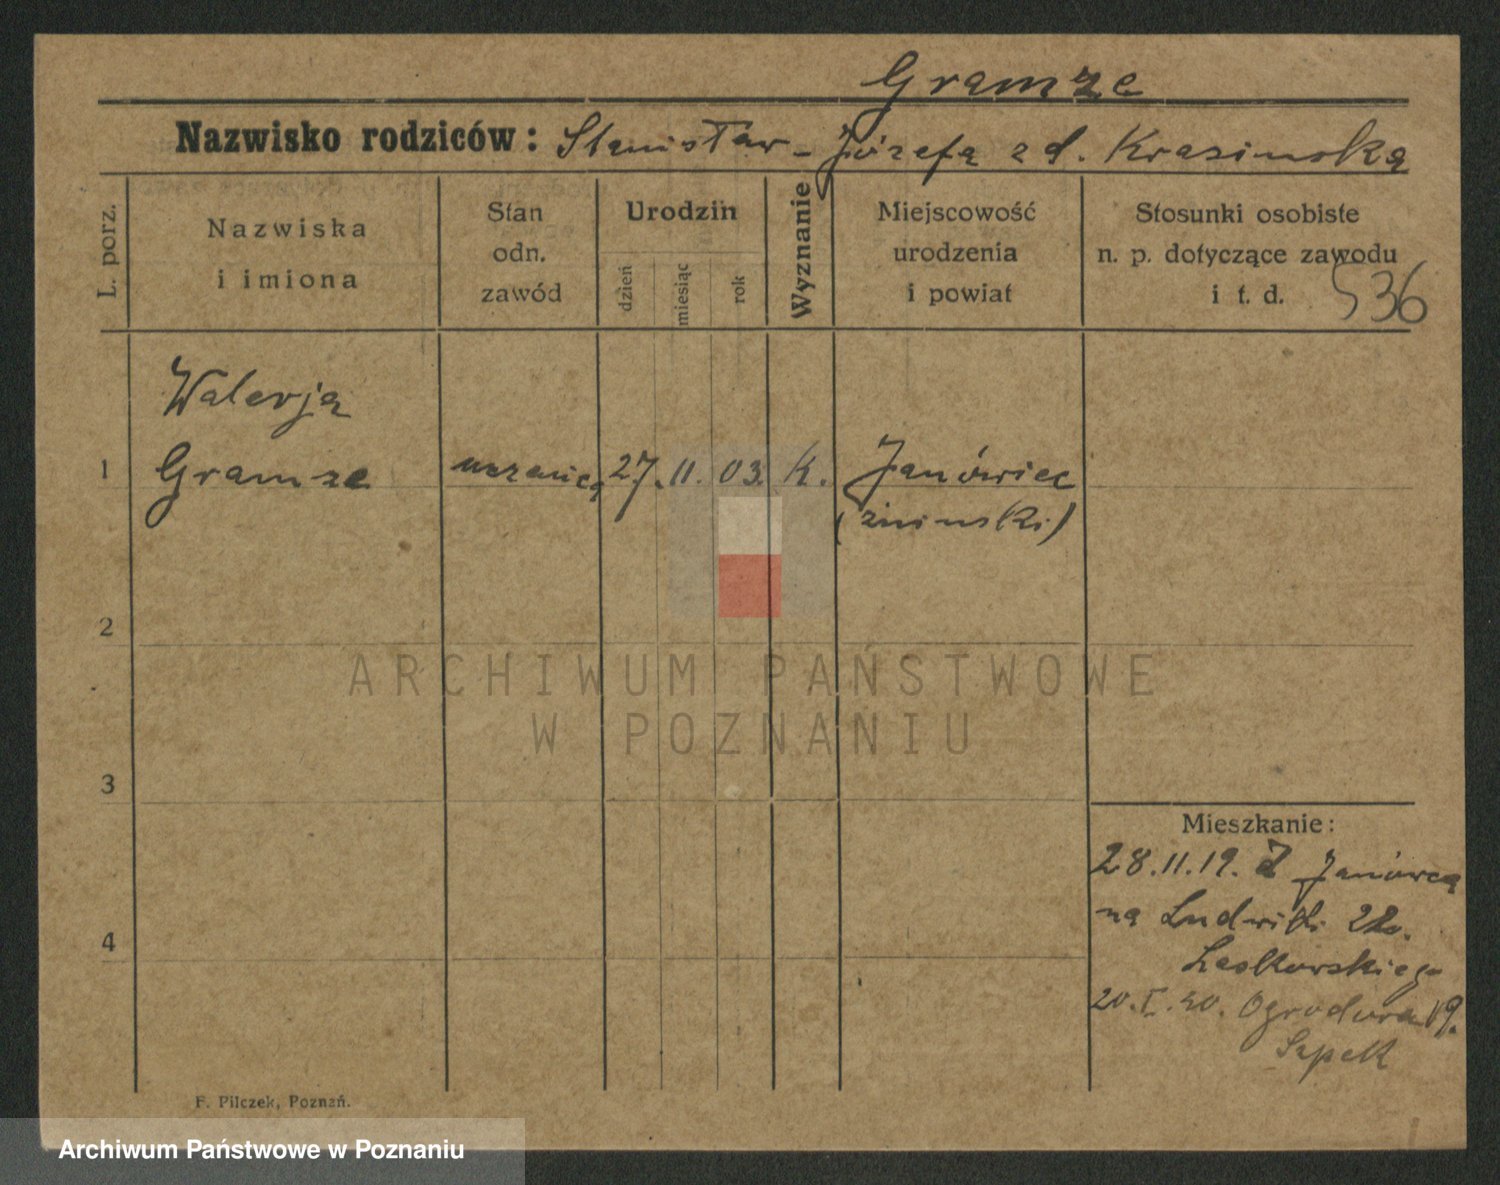 Gramze
Nazwisko rodziców: Stanisław – Józefa z d. Krasinska
L. porz.
Nazwiska
i imiona
Stan
odn.
zawód
Urodzin
dzień
miesiąc
rok
Wyznanie
Miejscowość
urodzenia
i powiat
Stosunki osobiste
n. p. dotyczące zawodu
i t. d.
536
Walerja
1 Gramze uczenica 27. 11. 03. K. Janówiec
(żninski)
2
ARCHIWUM PAŃSTWOWE
W POZNANIU
3
Mieszkanie:
28.11.19. Z Janówca
na Ludwiki 22.
4
Laskowskiego
20. I. 20. Ogrodowa 19.
Szpek
F. Pilczek, Poznań.
Archiwum Państwowe w Poznaniu